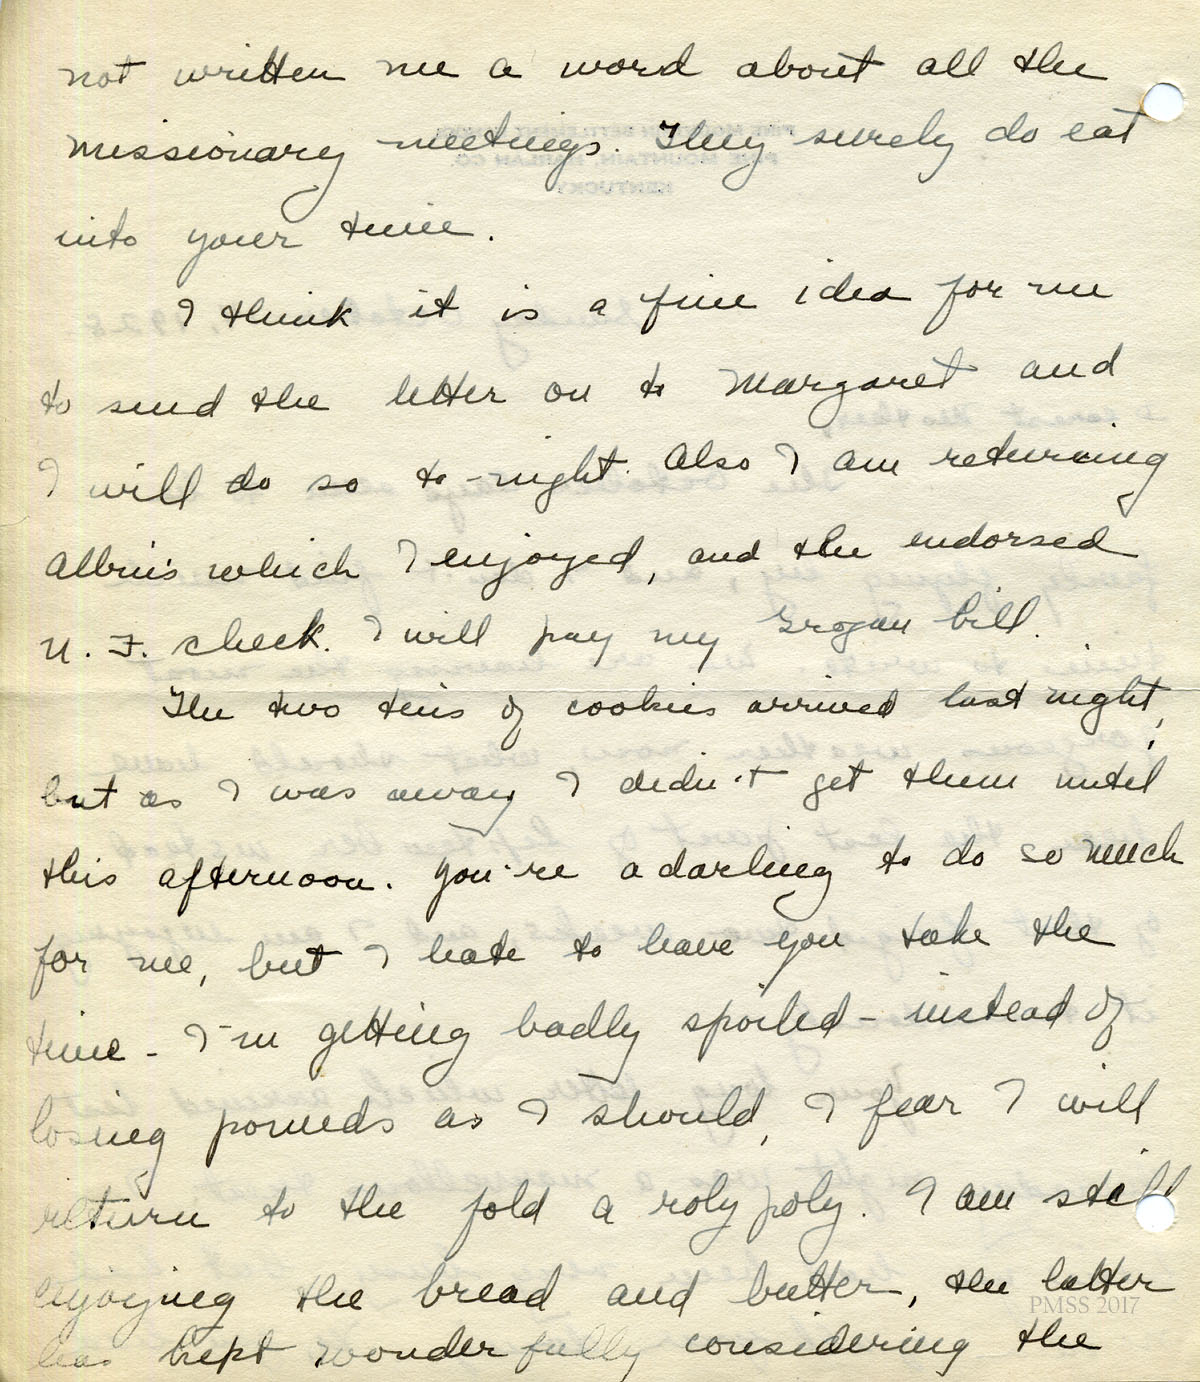 not written me a word about all the
missionary meetings. They surely do eat
into your time.
I think it is a fine idea for me
to send the letter on to Margaret and
I will do so to-night. Also I am returning
which I enjoyed, and the endorsed
N. F. check. I will pay my Grogan bill.
The two tins of cookies arrived last night,
but as I was away I didn't get them until
this afternoon. You're a darling to do so much
for me, but I hate to have you take the
time - I'm getting badly spoiled - instead of
losing pounds as I should, I fear I will
return to the fold a roly poly. I am still
enjoying the bread and butter, the latter
has kept wonderfully considering the
PMSS 2017